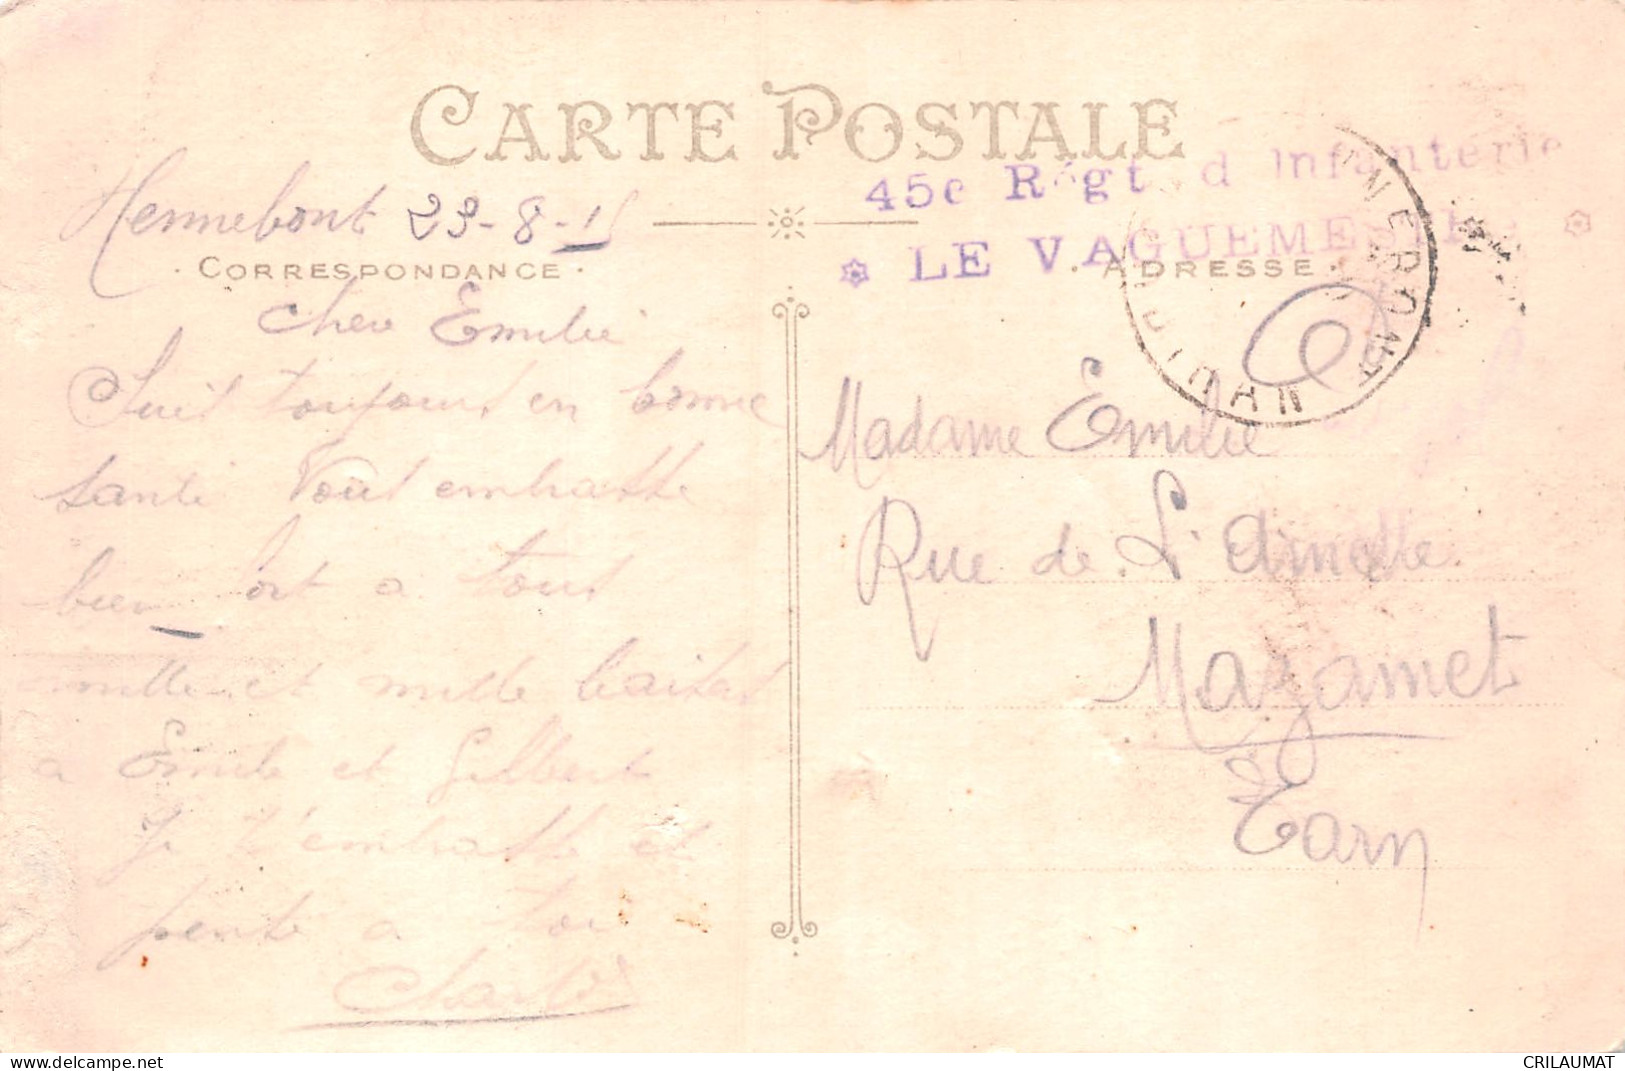 CARTE POSTALE
45e Régt d'Infanterie
* LE VAGUEMESTRE *
Hennebont 23-8-15
CORRESPONDANCE
ADRESSE
Chere Emilie
Suit toujours en bonne
sante Vous embrasse
bien fort a tous
mille et mille baisers
a Emile et Gilbert
Je t'embrasse et
pense a toi
Charles
Madame Emilie
Rue de L'
Mazamet
Tarn
www.delcampe.net
CRILAUMAT